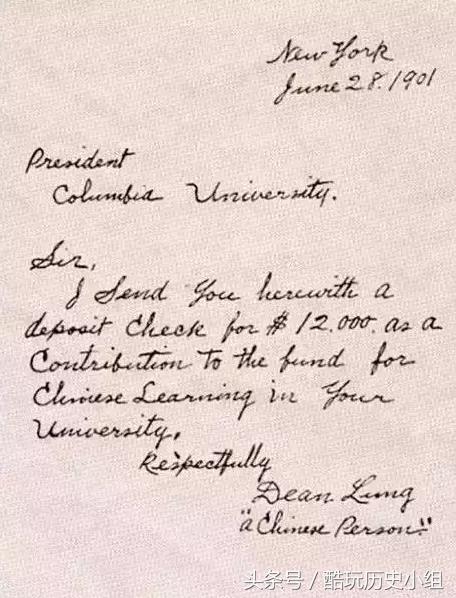 New York
June 28. 1901
President
Columbia University.
Sir,
I Send You herewith a
deposit Check for $ 12.000. as a
Contribution to the fund for
Chinese Learning in Your
University.
Respectfully
Dean Lung
"a Chinese Person"
头条号 / 酷玩历史小组